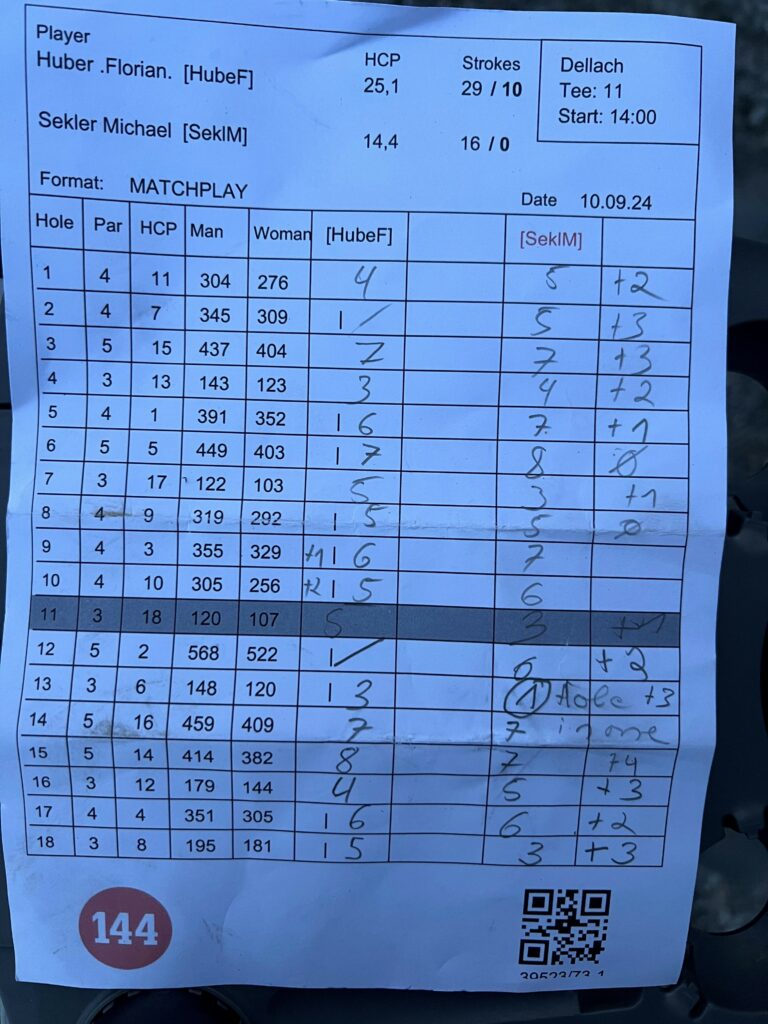 Player
Huber .Florian. [HubeF]
HCP
25,1
Strokes
29 / 10
Dellach
Tee: 11
Start: 14:00
Sekler Michael [SeklM]
14,4
16 / 0
Format: MATCHPLAY
Date 10.09.24
Hole Par HCP Man Woman [HubeF] [SeklM]
1 4 11 304 276 4 5 +2
2 4 7 345 309 | / 5 +3
3 5 15 437 404 7 7 +3
4 3 13 143 123 3 4 +2
5 4 1 391 352 | 6 7 +1
6 5 5 449 403 | 7 8 0
7 3 17 122 103 5 3 +1
8 4 9 319 292 | 5 5 0
9 4 3 355 329 +1 | 6 7
10 4 10 305 256 +2 | 5 6
11 3 18 120 107 5 3 +1
12 5 2 568 522 | / 6 +2
13 3 6 148 120 | 3 1 Hole +3
14 5 16 459 409 7 7 in one
15 5 14 414 382 8 7 +4
16 3 12 179 144 4 5 +3
17 4 4 351 305 | 6 6 +2
18 3 8 195 181 | 5 3 +3
144
39523/73 1